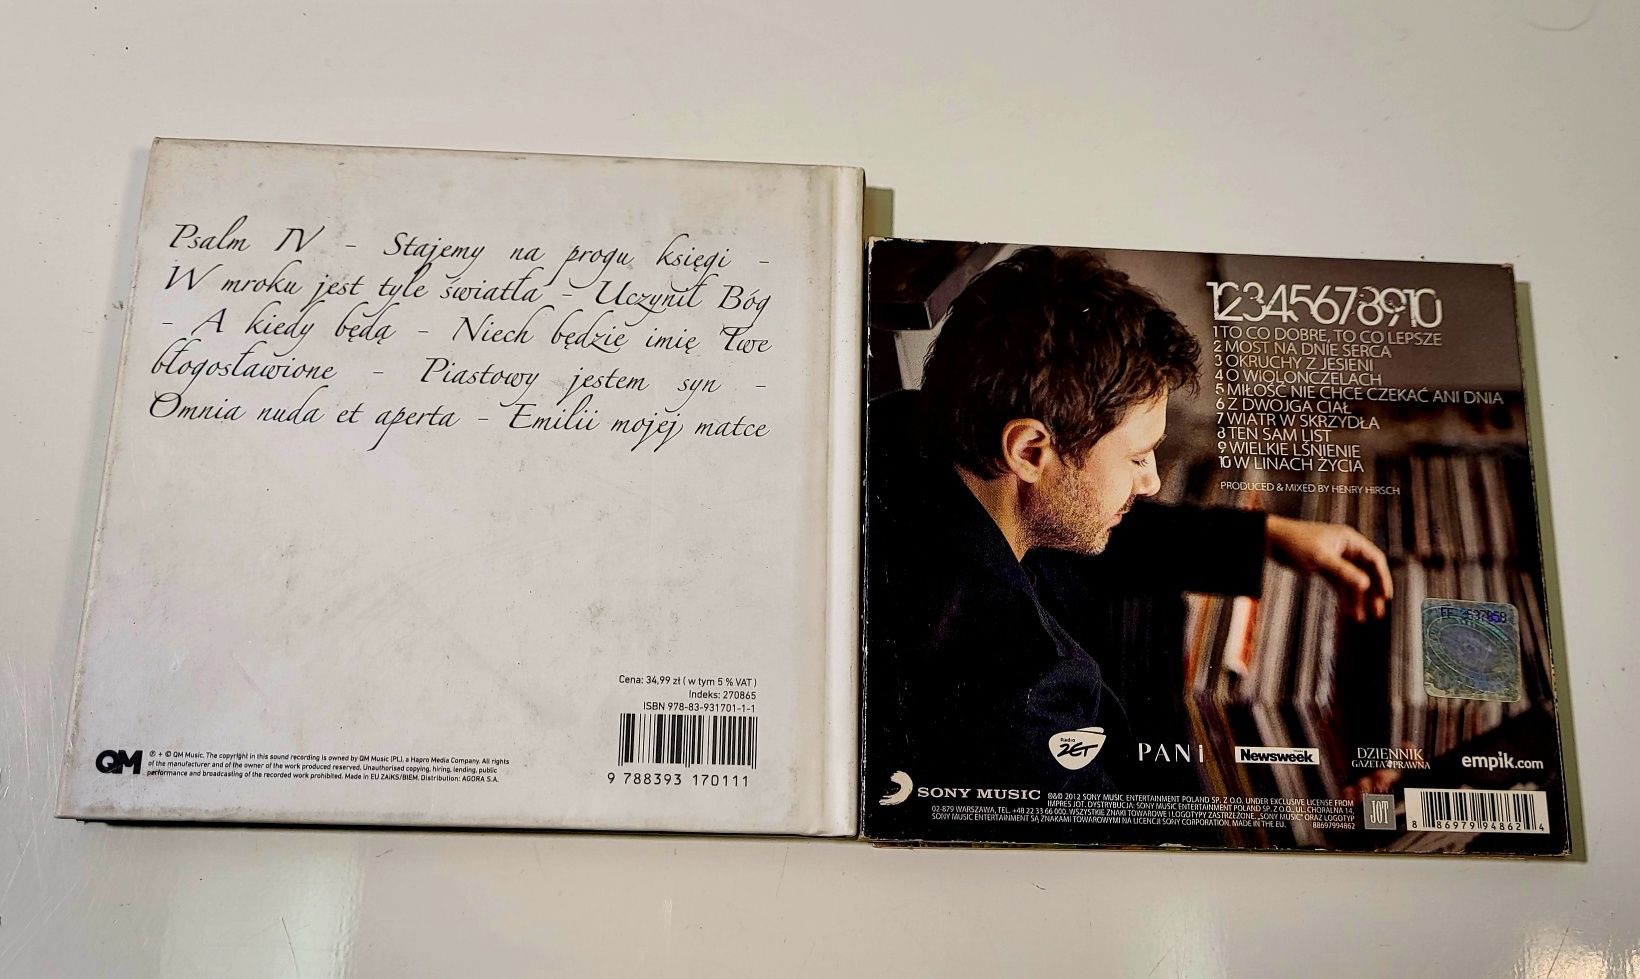 Psalm IV - Stajemy na progu księgi -
W mroku jest tyle światła - Uczynił Bóg
- A kiedy będą - Niech będzie imię Twe
błogosławione - Piastowy jestem syn -
Omnia nuda et aperta - Emilii mojej matce
Cena: 34,99 zł ( w tym 5 % VAT )
Indeks: 270865
ISBN 978-83-931701-1-1
9 788393 170111
QM
℗ + © QM Music. The copyright in this sound recording is owned by QM Music (PL), a Hapro Media Company. All rights
of the manufacturer and of the owner of the work produced reserved. Unauthorised copying, hiring, lending, public
performance and broadcasting of the recorded work prohibited. Made in EU ZAiKS/BIEM. Distribution: AGORA S.A.
12345678910
1 TO CO DOBRE, TO CO LEPSZE
2 MOST NA DNIE SERCA
3 OKRUCHY Z JESIENI
4 O WIOLONCZELACH
5 MIŁOŚĆ NIE CHCE CZEKAĆ ANI DNIA
6 Z DWOJGA CIAŁ
7 WIATR W SKRZYDŁA
8 TEN SAM LIST
9 WIELKIE LŚNIENIE
10 W LINACH ŻYCIA
PRODUCED & MIXED BY HENRY HIRSCH
Radio ZET
PANi
Newsweek
DZIENNIK
GAZETA PRAWNA
empik.com
SONY MUSIC
℗&© 2012 SONY MUSIC ENTERTAINMENT POLAND SP. Z O.O. UNDER EXCLUSIVE LICENSE FROM
IMPRES JOT. DYSTRYBUCJA: SONY MUSIC ENTERTAINMENT POLAND SP. Z O.O., UL. CHORALNA 14,
02-879 WARSZAWA, TEL. +48 22 33 66 000. WSZYSTKIE ZNAKI TOWAROWE I LOGOTYPY ZASTRZEŻONE. „SONY MUSIC" ORAZ LOGOTYP
SONY MUSIC ENTERTAINMENT SĄ ZNAKAMI TOWAROWYMI NA LICENCJI SONY CORPORATION. MADE IN THE EU.
88697994862
JOT
8 86979 94862 4